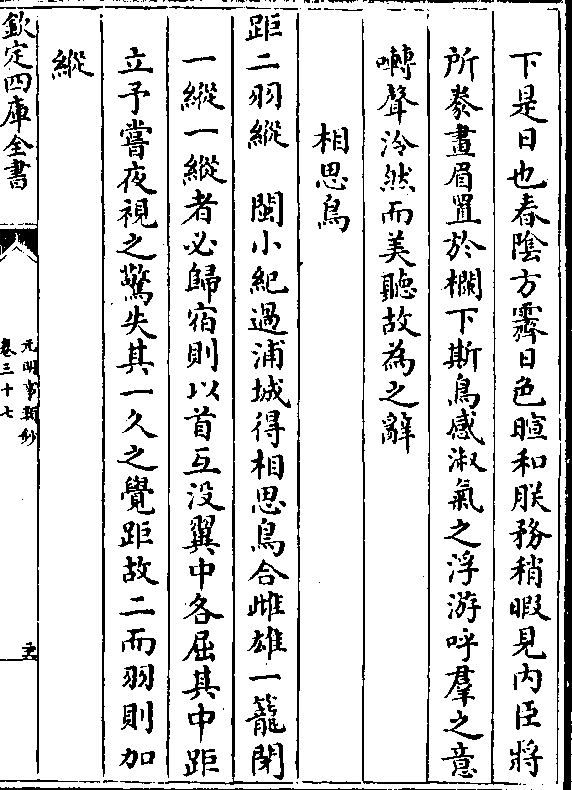 下是日也春陰方霽日色暄和朕務稍暇見內臣將
所豢畫眉置於欄下斯鳥感淑氣之浮游呼羣之意
囀聲泠然而美聽故為之辭
相思鳥
距二羽縱 閩小紀過浦城得相思鳥合雌雄一籠閉
一縱一縱者必歸宿則以首互沒翼中各屈其中距
立予嘗夜視之驚失其一久之覺距故二而羽則加
縱
欽定四庫全書
元明事類鈔
卷三十七